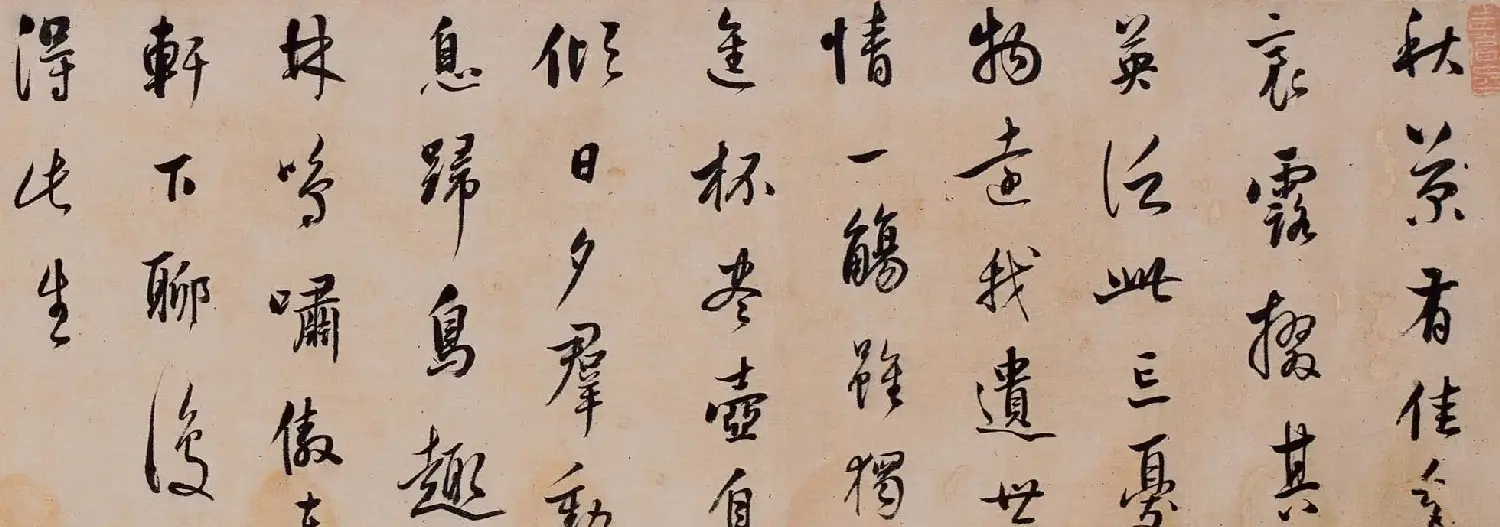 秋菊有佳色
裛露掇其
英泛此忘憂
物遠我遺世
情一觴雖獨
進杯盡壺自
傾日夕羣動
息歸鳥趣
林鳴嘯傲東
軒下聊復
得此生